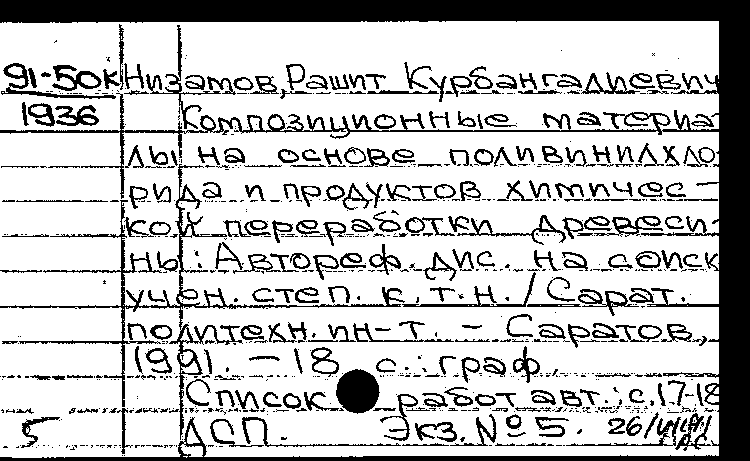 91-50к Низамов, Рашит Курбангалиевич
1936 Композиционные материа-
лы на основе поливинилхло-
рида и продуктов химичес-
кой переработки древеси-
ны: Автореф. дис. на соиск
учен. степ. к.т.н. / Сарат.
политехн. ин-т. - Саратов,
1991. - 18 с.: граф.
Список работ авт.: с. 17-18
5 ДСП. Экз. № 5. 26/